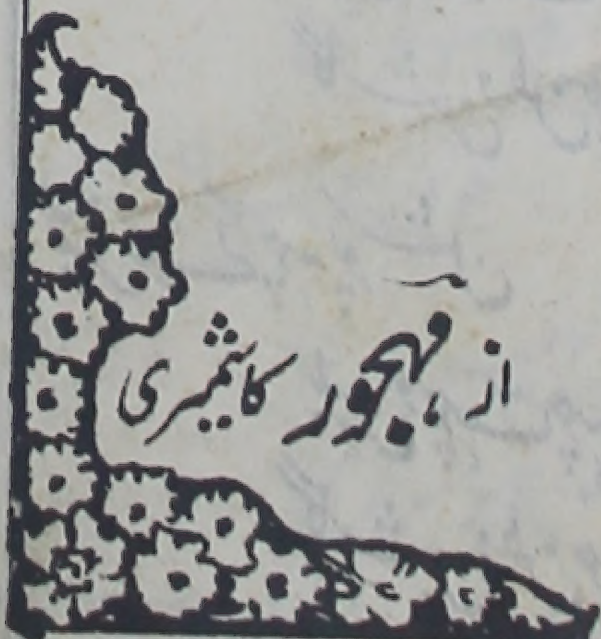 از، مہجور کاشمیری